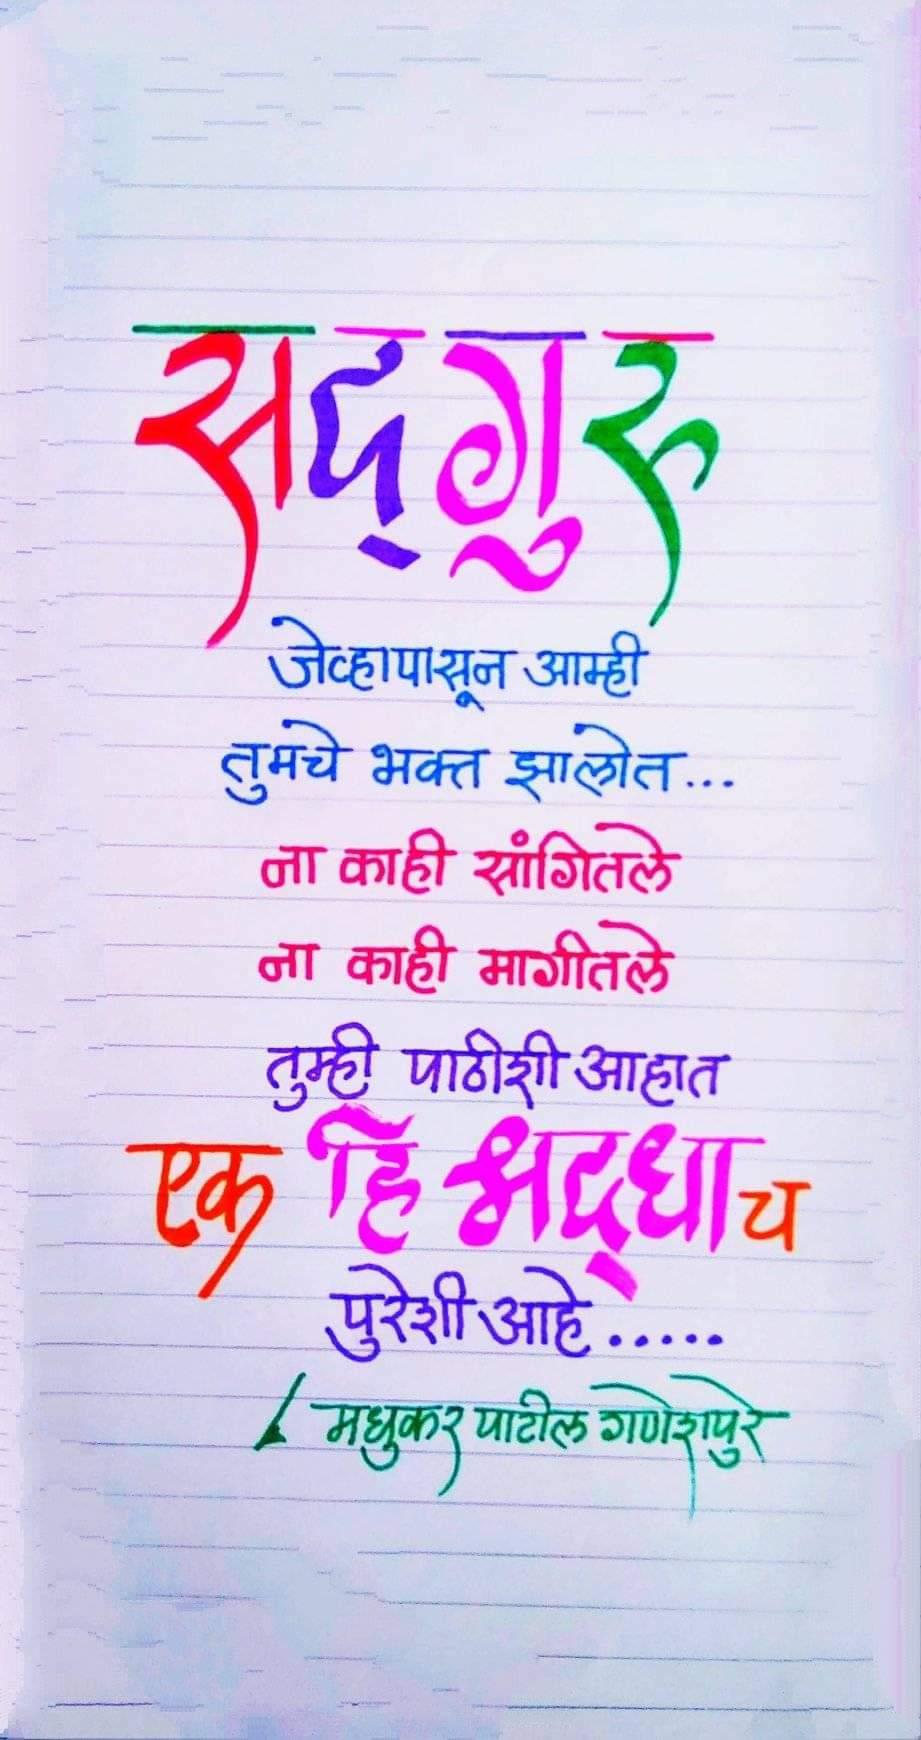 सद्गुरु
जेव्हापासून आम्ही
तुमचे भक्त झालोत...
ना काही सांगितले
ना काही मागीतले
तुम्ही पाठीशी आहात
एक हि श्रद्धाच
पुरेशी आहे.....
मधुकर पाटील गणेशपुरे